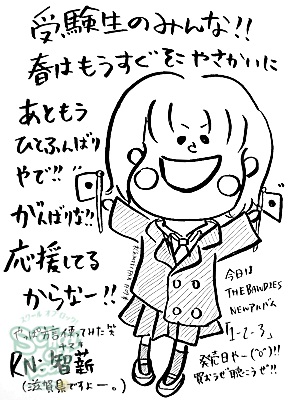 受験生のみんな!!
春はもうすぐそこやさかいに
あともう
ひとふんばり
やで!!
がんばりな!!
応援してる
からなー!!
やっぱ方言使ってみた笑
RN:智薪
(滋賀県ですよー。)
今日は
THE BAWDIES
NEWアルバム
「1-2-3」
発売日やー(^o^)!!
買おうぜ聴こうぜ!!